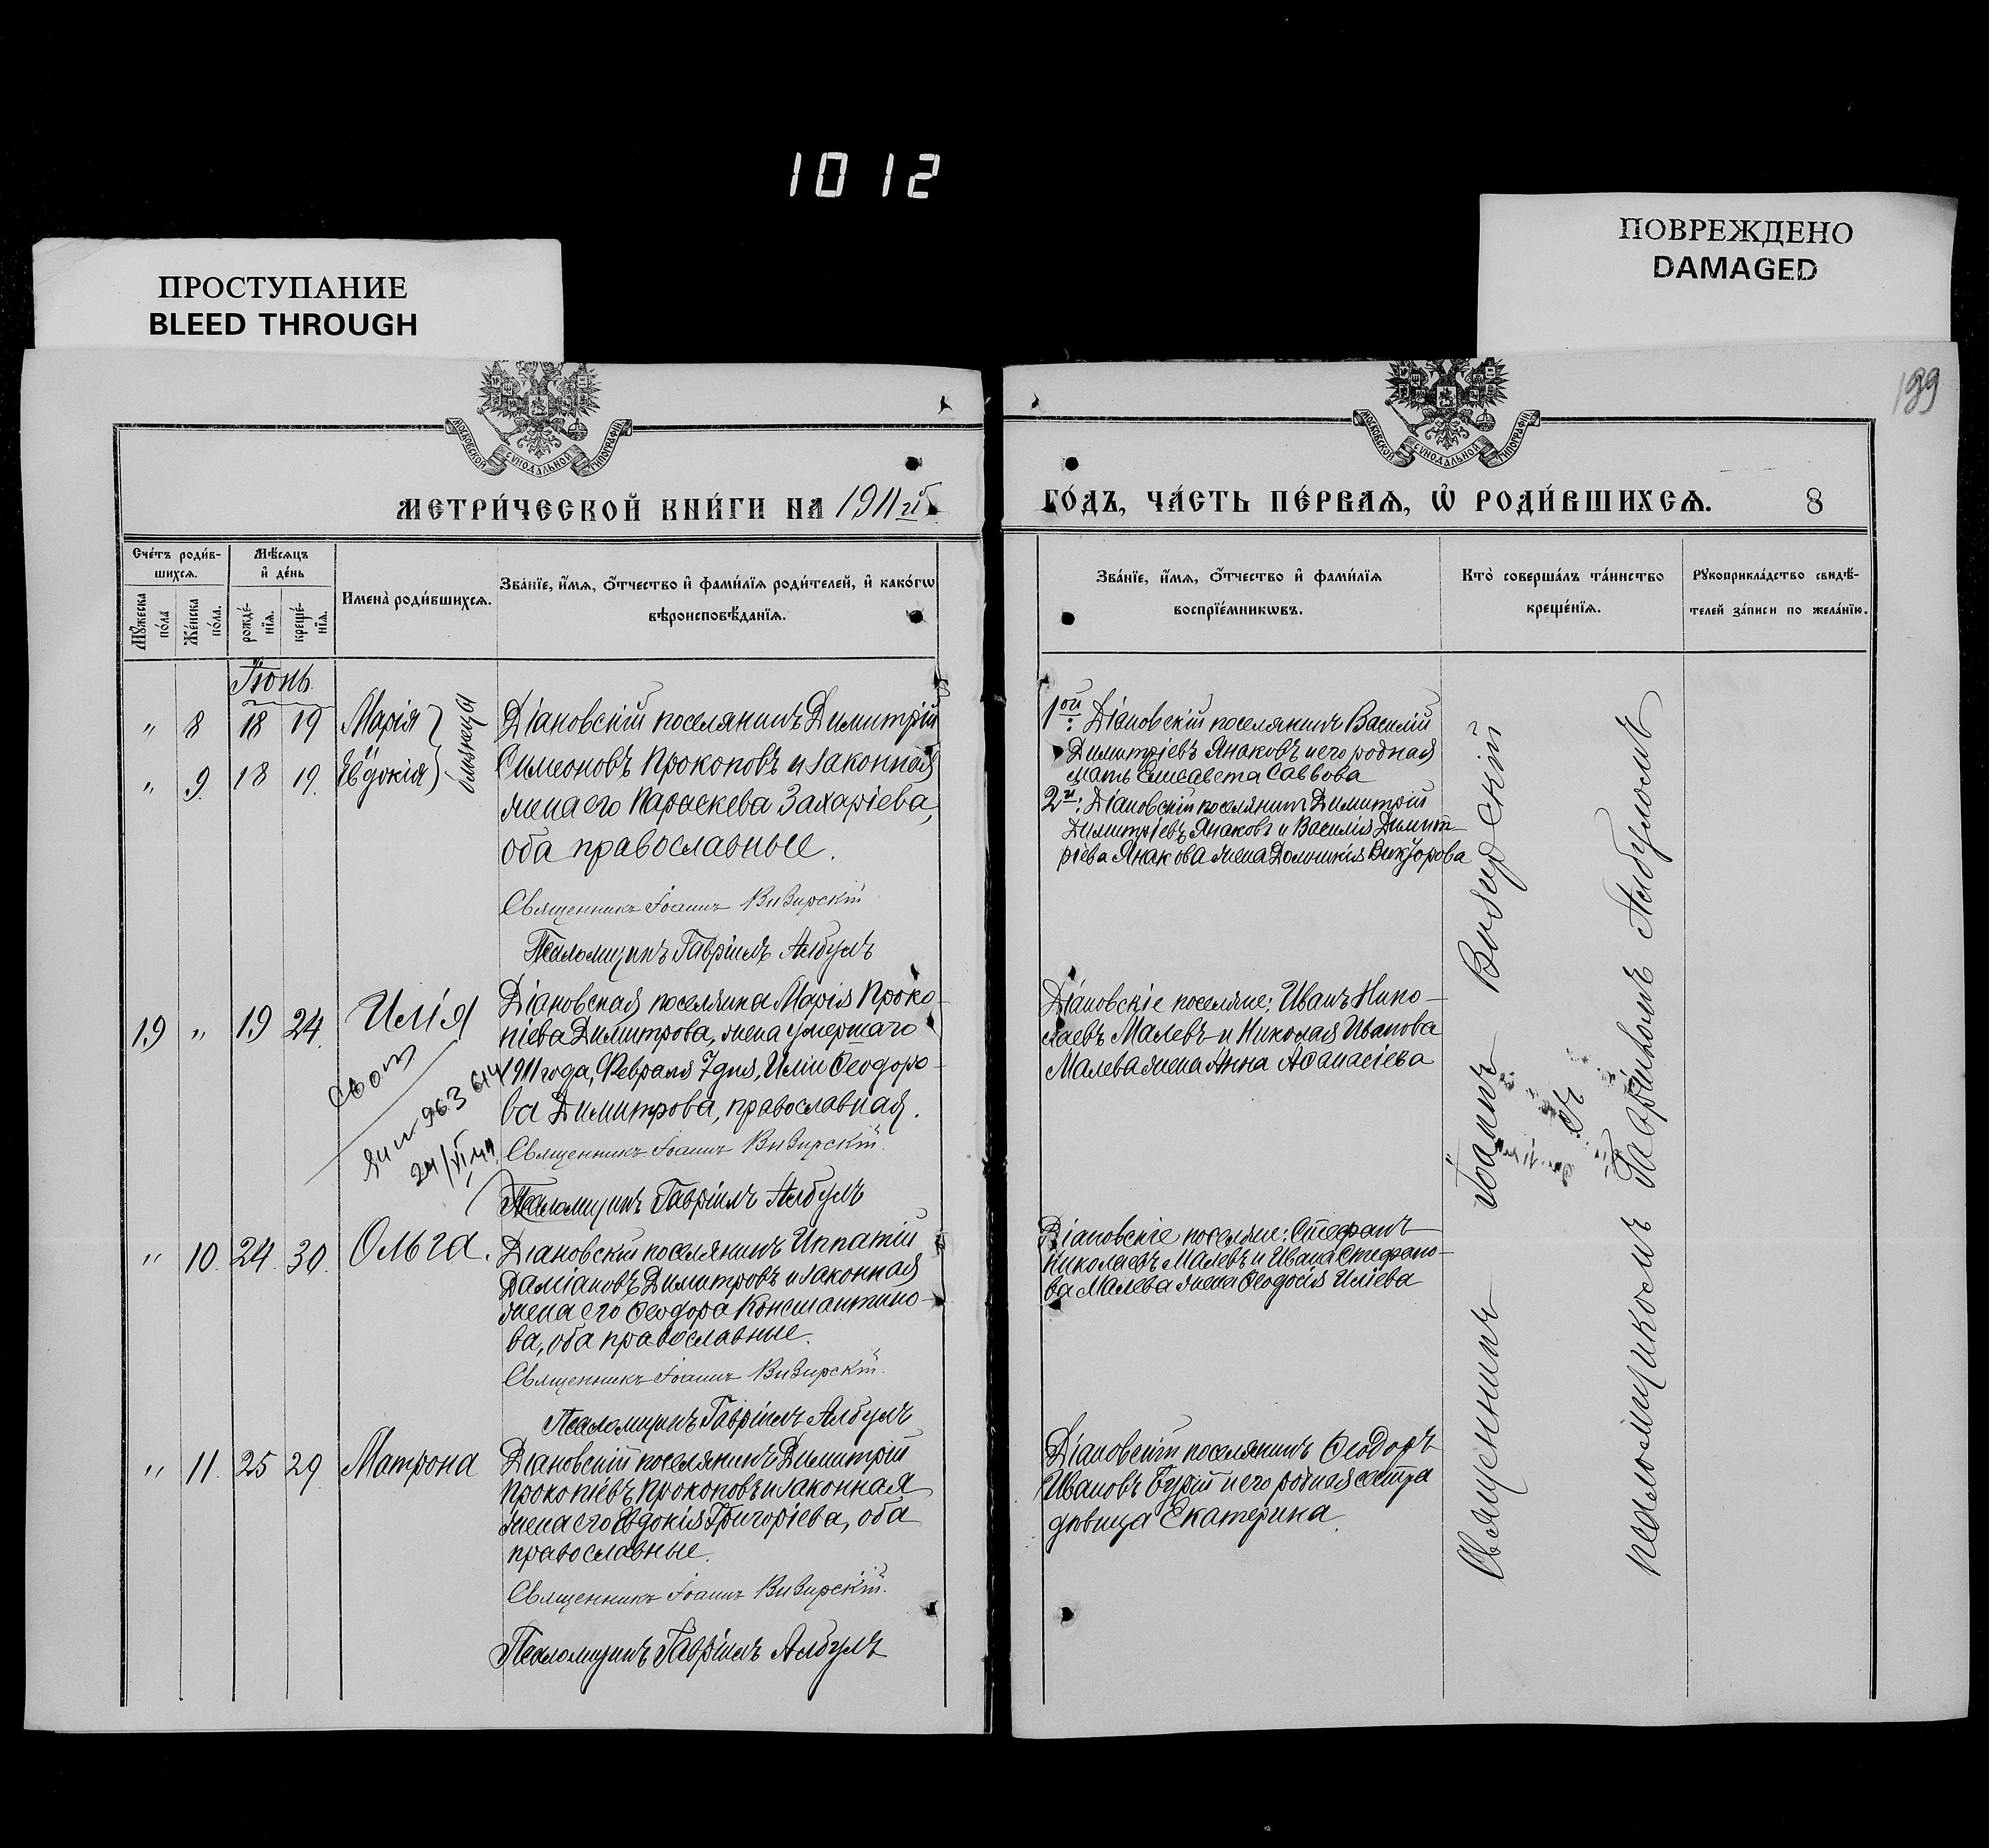 1012
ПРОСТУПАНИЕ
BLEED THROUGH
ПОВРЕЖДЕНО
DAMAGED
199
МОСКОВСКОЙ СѴНОДАЛЬНОЙ ТИПОГРАФІИ
МОСКОВСКОЙ СѴНОДАЛЬНОЙ ТИПОГРАФІИ
МЕТРИ́ЧЕСКОЙ КНИ́ГИ НА 1911 й
ГО́ДЪ, ЧА́СТЬ ПЕ́РВАѦ, Ѡ҆ РОДИ́ВШИХСѦ. 8
Сче́тъ роди́в-
шихсѧ.
Мѣ́сѧцъ
и҆ де́нь
Мꙋ́жеска
по́ла
Же́нска
по́ла.
рожде́-
нїѧ.
креще́-
нїѧ.
Имена̀ роди́вшихсѧ.
Зва́нїе, и҆́мѧ, ѻ҆́тчество и҆ фами́лїѧ роди́телей, и҆ како́гѡ
вѣроисповѣ́данїѧ.
Зва́нїе, и҆́мѧ, ѻ҆́тчество и҆ фами́лїѧ
воспрїе́мникѡвъ.
Кто̀ соверша́лъ та́инство
креще́нїѧ.
Рꙋкоприкла́дство свидѣ́-
телей за́писи по жела́нїю.
Іюнь.
" 8 18 19 Марія
" 9. 18 19. Евдокія
близнецы
Діановскій поселянинъ Димитрій
Симеоновъ Прокоповъ и законная
жена его Параскева Захаріева,
оба православные.
Священникъ Іоаннъ Визирскій
Псаломщикъ Гавріилъ Албулъ
1ой: Діановскій поселянинъ Василій
Димитріевъ Янаковъ и его родная
мать Елисавета Саввова
2й: Діановскій поселянинъ Димитрій
Димитріевъ Янаковъ и Василія Димит-
ріева Янакова жена Домникія Викторова
19 " 19 24. Илія
Діановская поселянка Марія Проко-
піева Димитрова, жена умершаго
1911 года, Февраля 7 дня, Иліи Ѳеодоро-
ва Димитрова, православная.
Священникъ Іоаннъ Визирскій.
Псаломщикъ Гавріилъ Албулъ
963 614
Діановскіе поселяне: Иванъ Нико-
лаевъ Малевъ и Николая Иванова
Малева жена Анна Афанасіева
" 10. 24. 30. Ольга.
Діановскій поселянинъ Ипатій
Даміановъ Димитровъ и законная
жена его Ѳеодора Константино-
ва, оба православные.
Священникъ Іоаннъ Визирскій.
Псаломщикъ Гавріилъ Албулъ
Діановскіе поселяне: Стефанъ
Николаевъ Малевъ и Ивана Стефано-
ва Малева жена Ѳеодосія Иліева
" 11. 25 29. Матрона
Діановскій поселянинъ Димитрій
Прокопіевъ Прокоповъ и законная
жена его Евдокія Григоріева, оба
православные.
Священникъ Іоаннъ Визирскій.
Псаломщикъ Гавріилъ Албулъ
Діановскій поселянинъ Ѳеодоръ
Ивановъ Бурій и его родная сестра
дѣвица Екатерина.
Священникъ Іоаннъ Визирскій
съ
псаломщикомъ Гавріиломъ Албуломъ